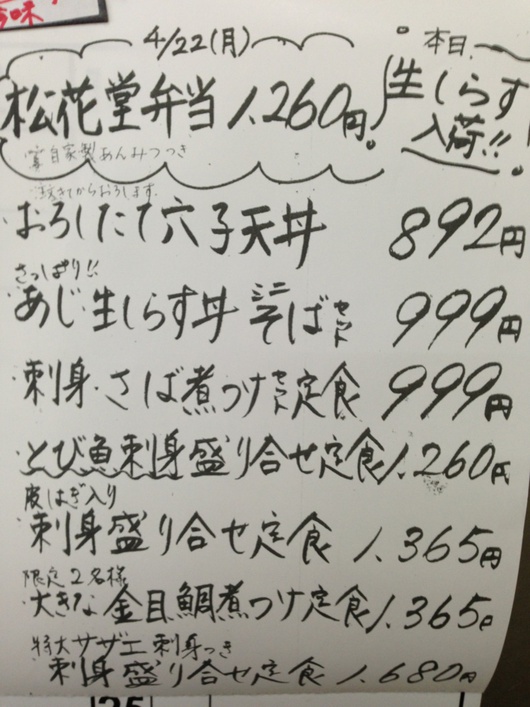 4/22(月)
本日
生しらす
入荷!!
松花堂弁当 1,260円
自家製あんみつつき
おろしたて穴子天丼 892円
さっぱり!!
あじ生しらす丼 ミニそばセット 999円
刺身・さば煮つけセット定食 999円
とび魚刺身盛り合せ定食 1,260円
皮はぎ入り
刺身盛り合せ定食 1,365円
限定2名様
大きな金目鯛煮つけ定食 1,365円
特大サザエ刺身つき
刺身盛り合せ定食 1,680円
25